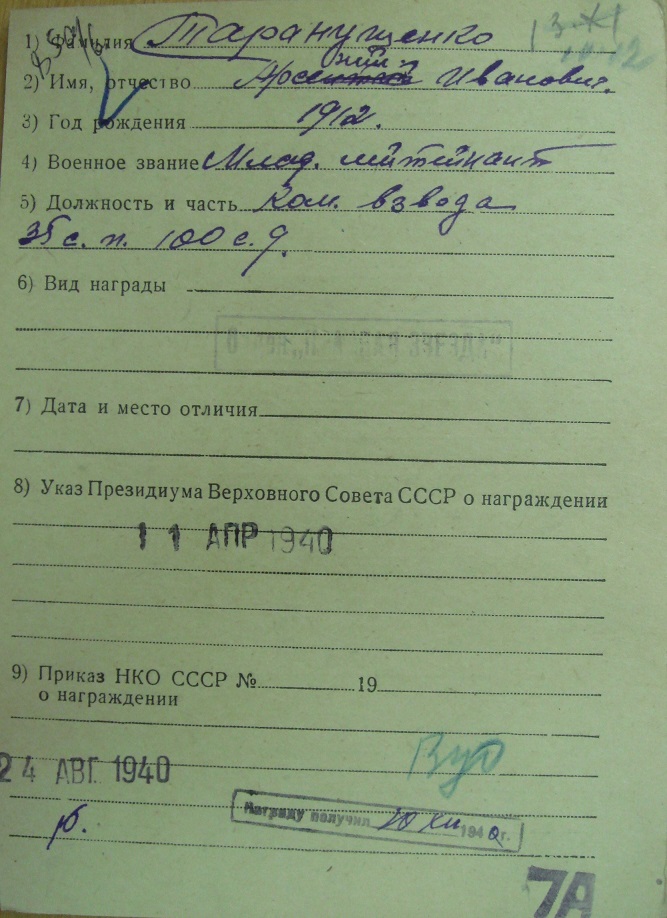 1) Фамилия Таранущенко
ний
2) Имя, отчество Иванович.
3) Год рождения 1912.
4) Военное звание Млад. лейтенант
5) Должность и часть Ком. взвода
35 с. п. 100 с. д.
6) Вид награды
7) Дата и место отличия
8) Указ Президиума Верховного Совета СССР о награждении
11 АПР 1940
9) Приказ НКО СССР № 19
о награждении
24 АВГ 1940
Награду получил 20 XII 1940 г.
7А